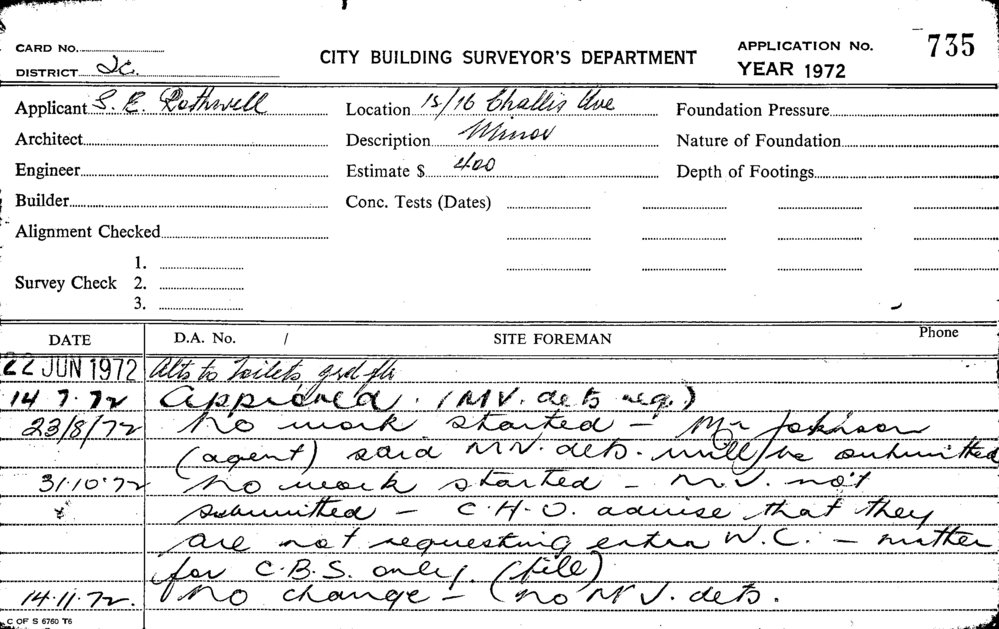 CARD No.
DISTRICT
CITY BUILDING SURVEYOR'S DEPARTMENT
APPLICATION No. 735
YEAR 1972
Applicant S. E. Rothwell
Location 15/16 Challis Ave
Foundation Pressure
Architect
Description Minor
Nature of Foundation
Engineer
Estimate $ 400
Depth of Footings
Builder
Conc. Tests (Dates)
Alignment Checked
Survey Check 1.
2.
3.
DATE D.A. No. / SITE FOREMAN Phone
22 JUN 1972 Alts to Toilets grd flr
14.7.72 Approved. (MV. dets req.)
23/8/72 No work started - Mr Johnson
(agent) said MV. dets. will be submitted
31.10.72 No work started - M.V. not
submitted - C.H.O. advise that they
are not requesting extra W.C. - matter
for C.B.S. only. (file)
14.11.72. No change - (no M V. dets.
C OF S 6760 T6